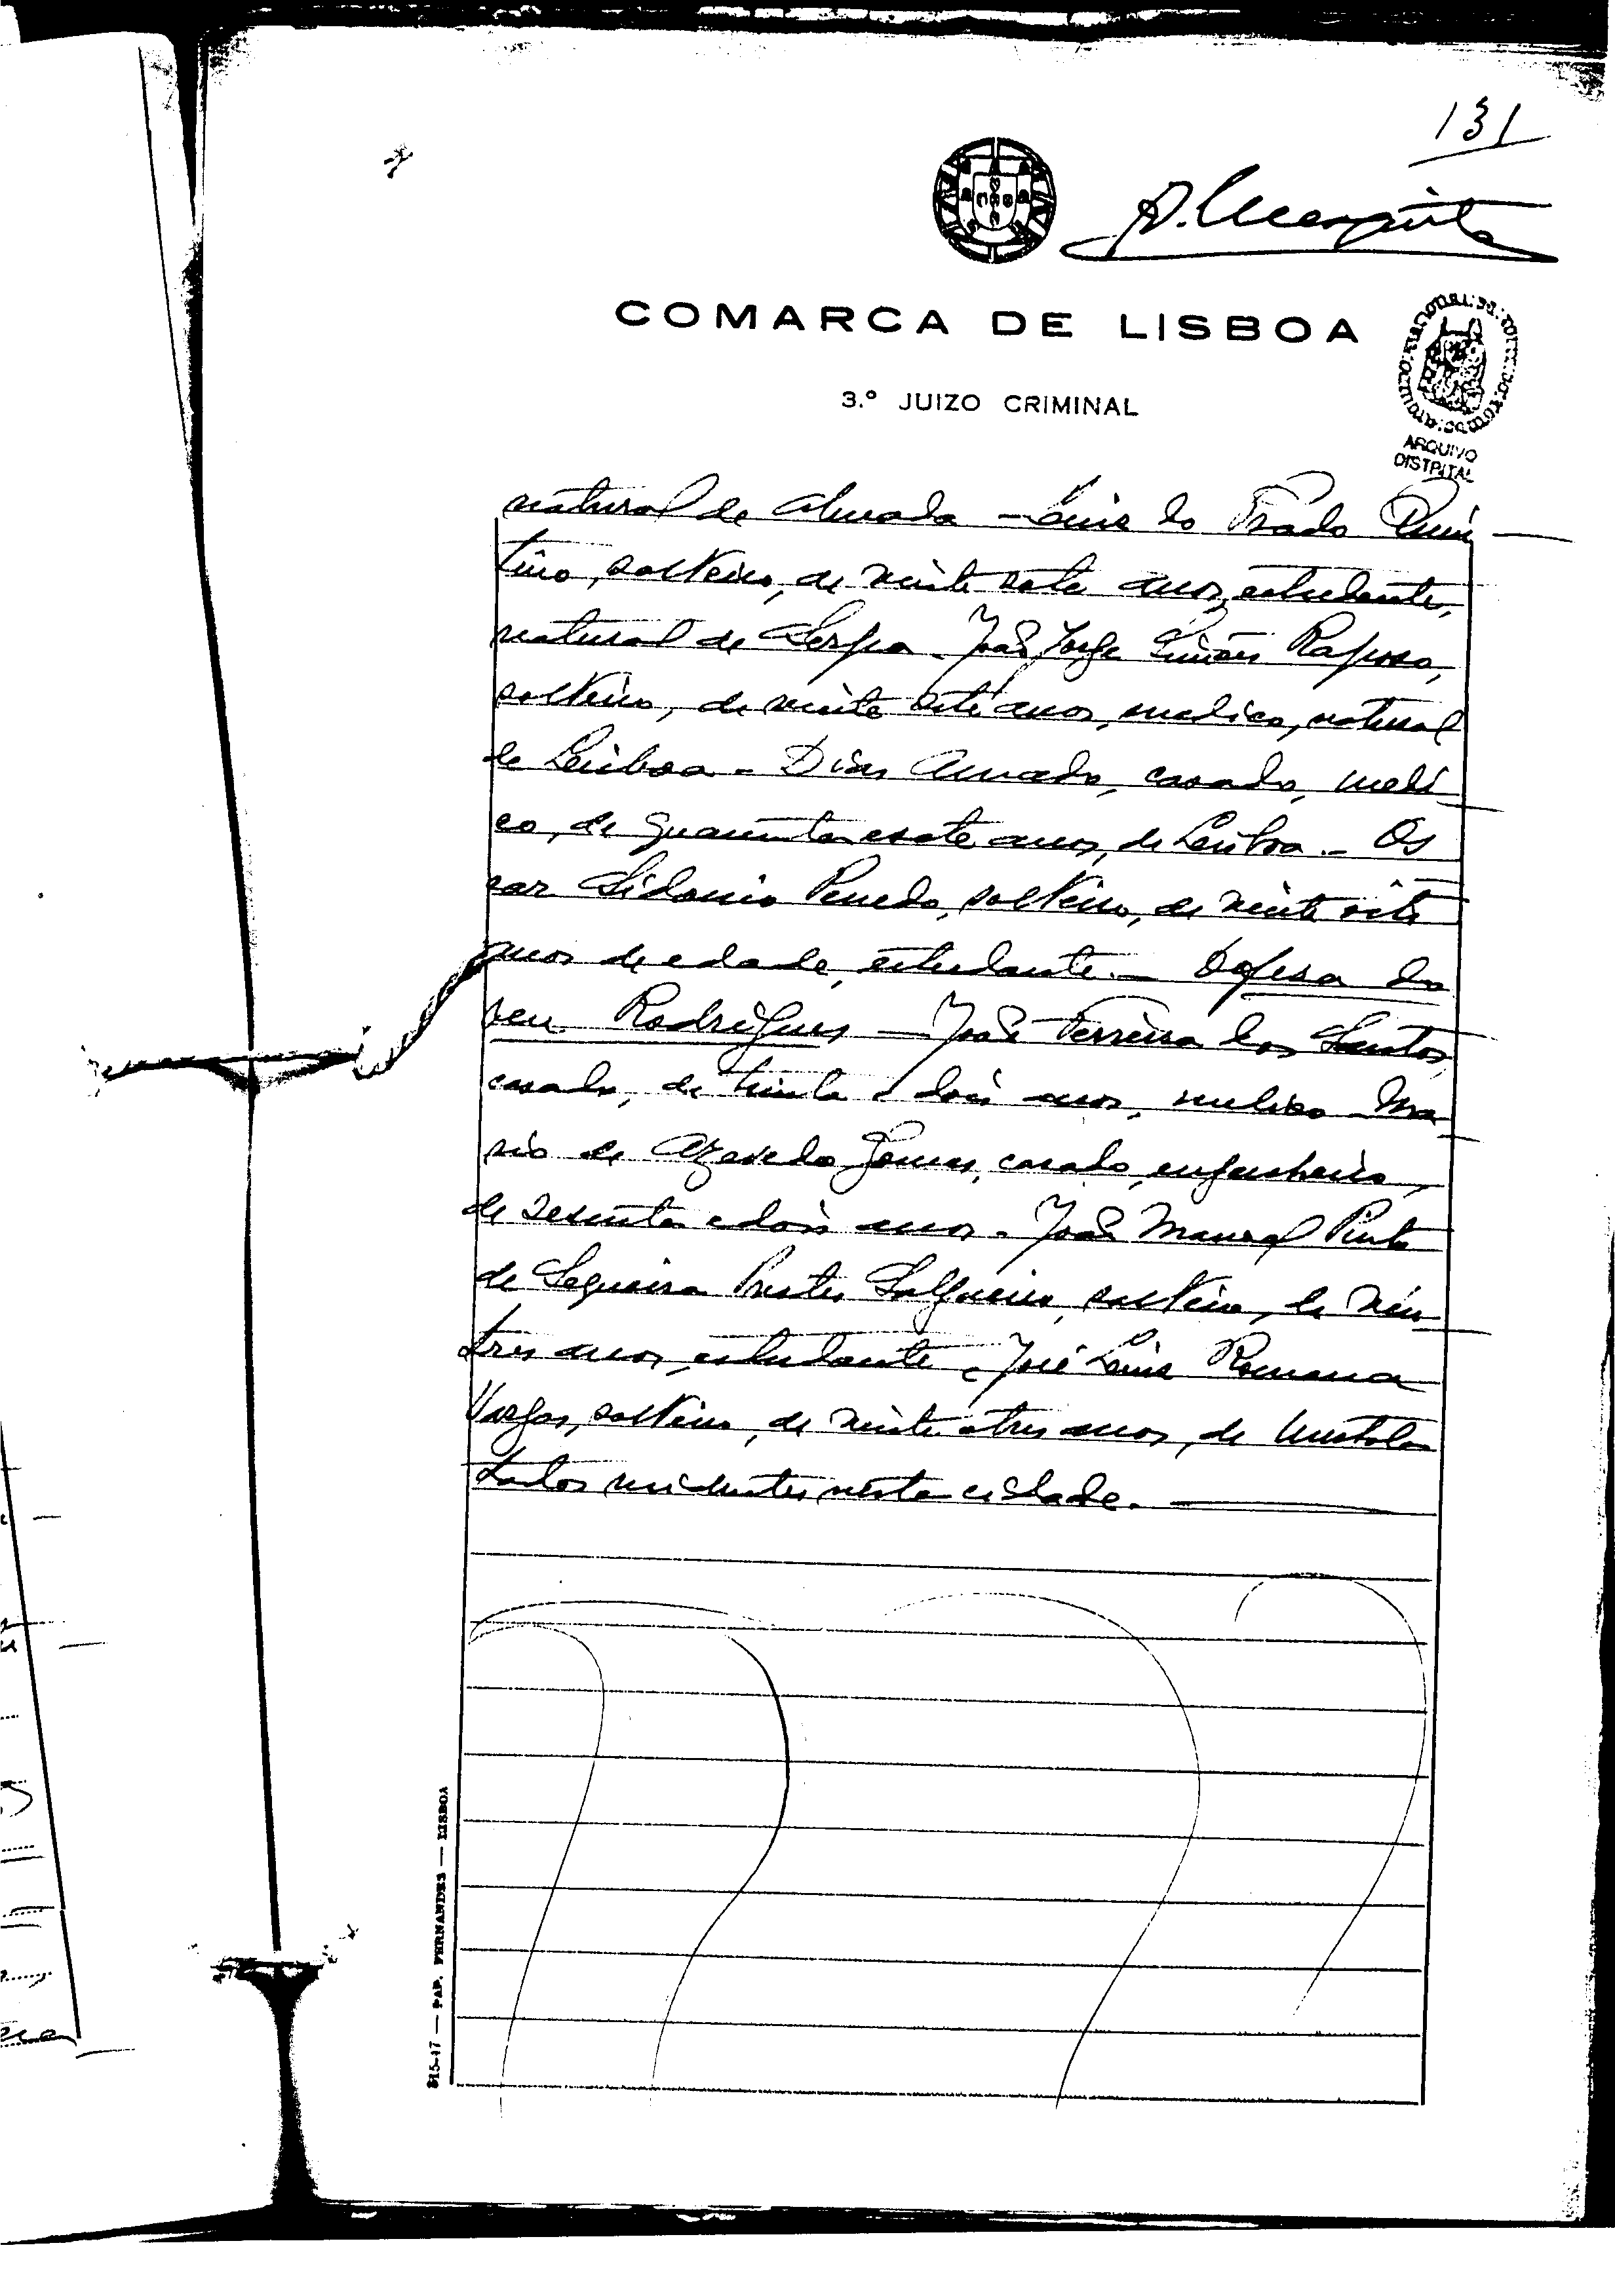 131
A. Mesquita
COMARCA DE LISBOA
3.º JUIZO CRIMINAL
ARQUIVO
DISTRITAL
natural de Almada - Luis do Prado Quin
tino, solteiro, de vinte sete anos, estudante,
natural de Serpa. João Jorge Simões Raposo,
solteiro, de vinte sete anos, medico, natural
de Leisboa - Dias Amado, casado, medi
co, de quarenta e sete anos, de Leisboa. - Os
car Sidonio Penedo, solteiro, de vinte oito
anos de edade, estudante. - Defesa do
reu Rodrigues - José Ferreira dos Santos,
casado, de trinta e dois anos, medico - Ma
rio de Azevedo Gomes, casado, engenheiro,
de sesenta e dois anos - João Manuel Pinto
de Sequeira Prestes Salgueiro, solteiro, de vin
tres anos, estudante, José Luis Romana
Vargas, solteiro, de vinte e tres anos, de
todos residentes nesta cidade.
815-17 — PAP. FERNANDES — LISBOA